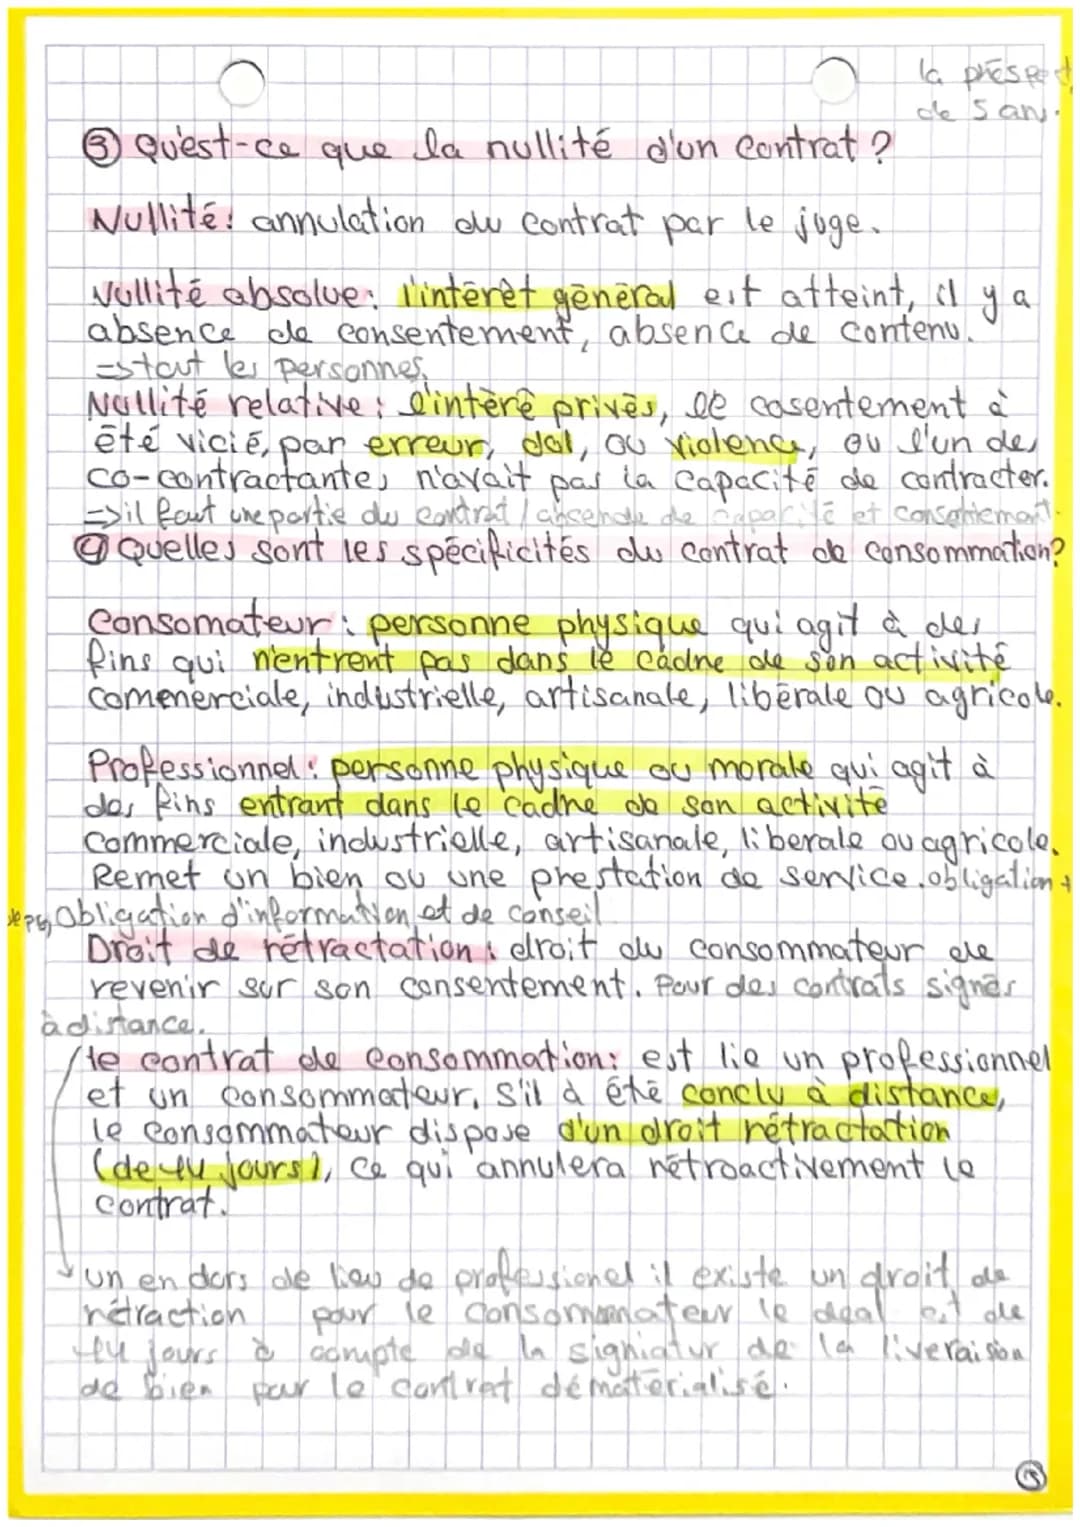 la préspect
de 5 ans.
③ Qu'est-ce que la nullité d'un contrat ?
Nullité : annulation du contrat par le juge.
Nullité absolue : l'intérêt général est atteint, il y a
absence de consentement, absence de contenu.
=> tout les personnes.
Nullité relative : l'intèrê privés, le cosentement à
été vicié, par erreur, dol, ou violence, ou l'un des
co-contractantes n'avait pas la capacité de contracter.
=> il faut une partie du contrat / de capacité et consentement.
④ Quelles sont les spécificités du contrat de consommation?
Consomateur : personne physique qui agit à des
fins qui n'entrent pas dans le cadre de son activité
comenerciale, industrielle, artisanale, libérale ou agricole.
Professionnel : personne physique ou morale qui agit à
des fins entrant dans le cadre de son activité
commerciale, industrielle, artisanale, liberale ou agricole.
Remet un bien ou une prestation de service. obligation +
Obligation d'information et de conseil.
Droit de rétractation : droit du consommateur de
revenir sur son consentement. Pour des contrats signés
à distance.
le contrat de consommation : est lie un professionnel
et un consommateur. S'il à été conclu à distance,
le consommateur dispose d'un droit rétractation
(de 14 jours), ce qui annulera rétroactivement le
contrat.
un en dors de lieu de professionel il existe un droit de
rétraction pour le consommateur le deal est de
14 jours à compte de la signiatur de la liveraision
de bien par le contrat dématérialisé.
13